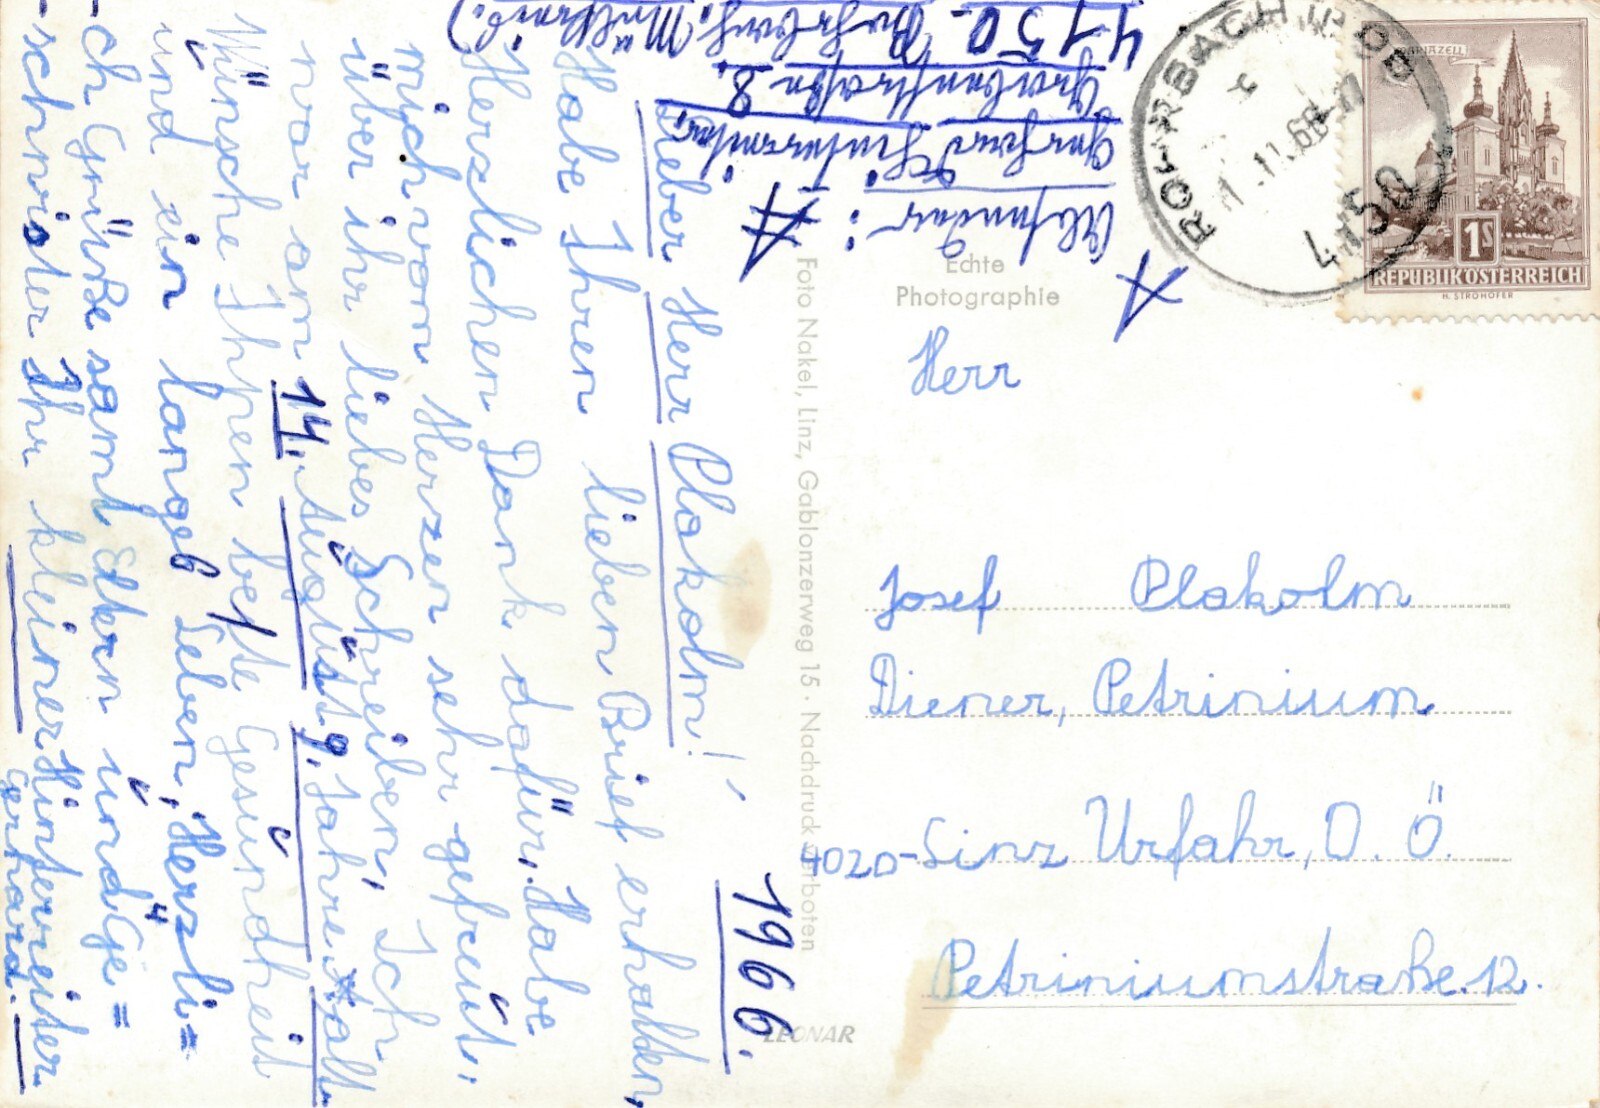 1966.
Lieber Herr Plakolm!
Habe Ihren lieben Brief erhalten,
Herzlichen Dank dafür. Habe
mich vom Herzen sehr gefreut,
über ihr liebes Schreiben, Ich
war am 14. August 9. Jahre alt
Wünsche Ihnen beste Gesundheit
und ein langes Leben, Herzli=
-ch Grüße samt Eltern und Ge=
-schwister Ihr kleiner Hinterreiter
Gerhard.
A
Absender:
Gerhard Hinterreiter
Grabenstraße 8.
4150 Rohrbach. Mühlkreis.)
A
Foto Nakel, Linz, Gablonzerweg 15 · Nachdruck verboten
LEONAR
Echte
Photographie
ROHRBACH IN OÖ
11.66
4150
MARIAZELL
1S
REPUBLIK ÖSTERREICH
H. STROHOFER
Herr
Josef Plakolm
Diener, Petrinium
4020-Linz Urfahr, O. Ö.
Petriniumstraße. 12.